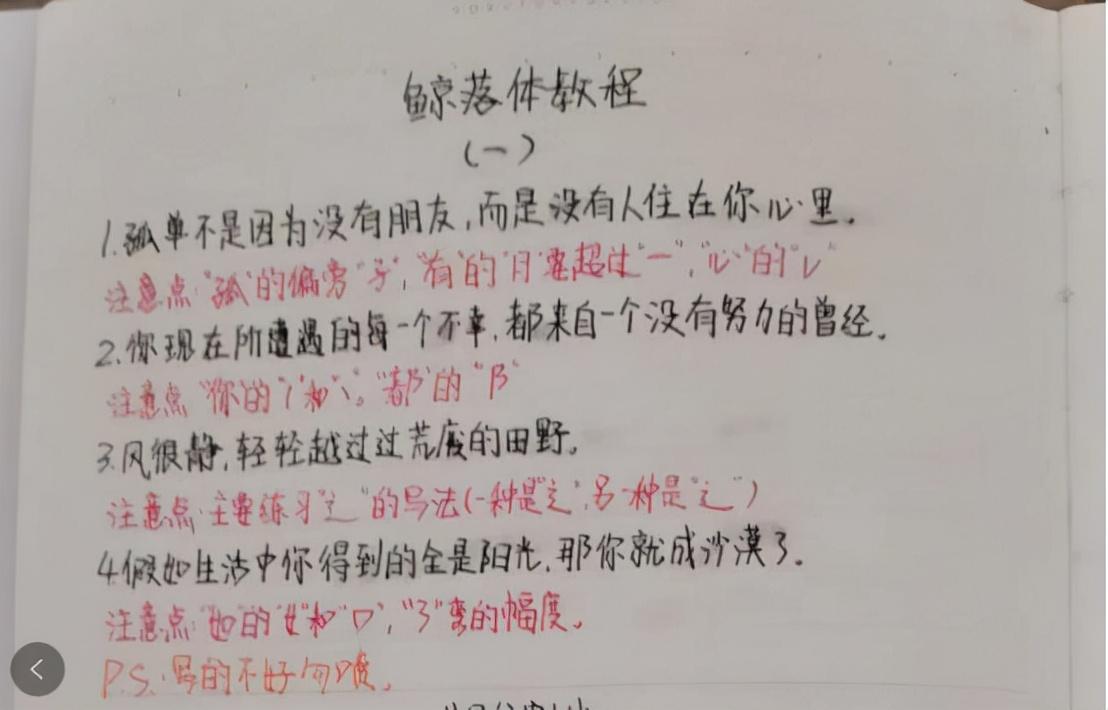 鲸落体教程
(一)
1.孤单不是因为没有朋友,而是没有人住在你心里.
注意点:"孤"的偏旁"子","有"的"月"要超过"一","心"的"乚"
2.你现在所遭遇的每一个不幸,都来自一个没有努力的曾经.
注意点"你"的"亻"和"丶"。"都"的"阝"
3.风很静,轻轻越过过荒废的田野。
注意点:主要练习"辶"的写法(一种是"辶",另一种是"辶")
4.假如生活中你得到的全是阳光,那你就成沙漠了.
注意点:"如"的"女"和"口","了"弯的幅度。
P.S.:写的不好勿喷。